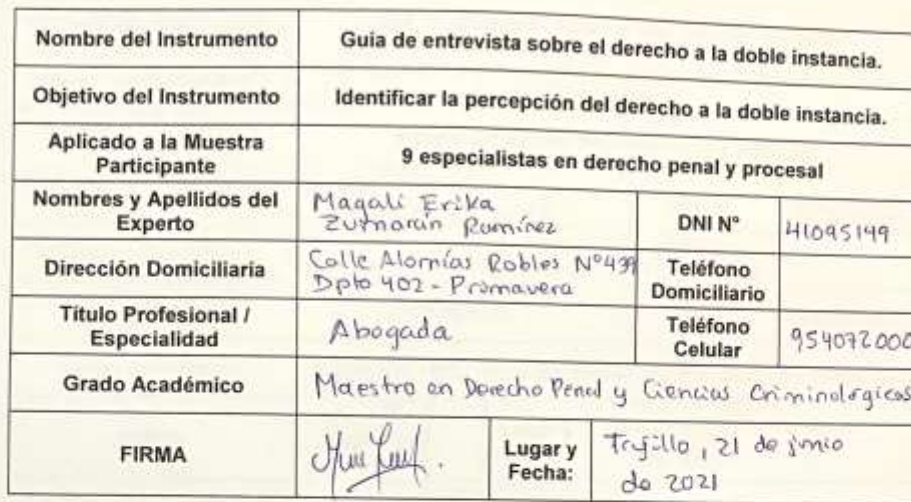 Nombre del Instrumento
Guia de entrevista sobre el derecho a la doble instancia.
Objetivo del Instrumento
Identificar la percepción del derecho a la doble instancia.
Aplicado a la Muestra
Participante
9 especialistas en derecho penal y procesal
Nombres y Apellidos del
Experto
Magali Erika
Zumarán Ramírez
DNI N°
41095149
Dirección Domiciliaria
Calle Robles N°439
Dpto 402 - Primavera
Teléfono
Domiciliario
Título Profesional /
Especialidad
Abogada
Teléfono
Celular
954072000
Grado Académico
Maestro en Derecho Penal y Ciencias Criminológicas
FIRMA
Lugar y
Fecha:
Trujillo, 21 de junio
de 2021